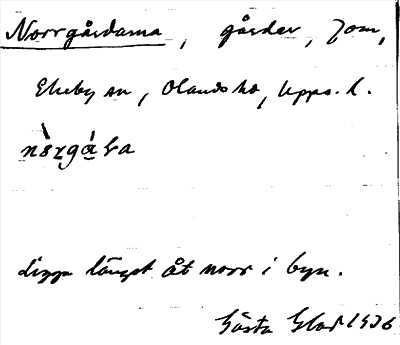 Norrgårdarna, gårdar, Jom,
Ekeby sn, Olands hd, Upps. l.
ligga längst åt norr i byn.
Gösta Glad 1936